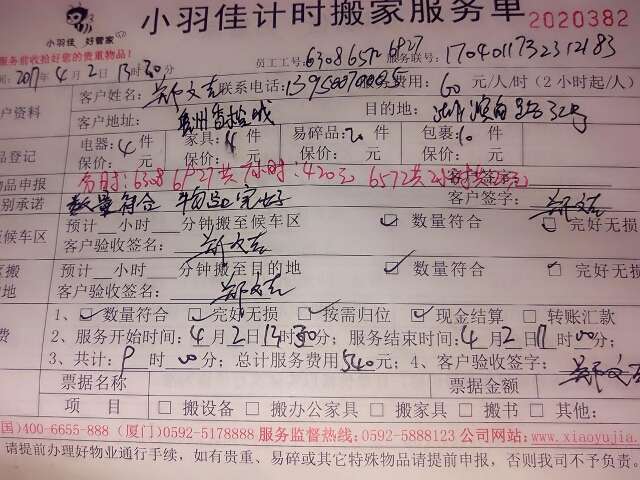 小羽佳计时搬家服务单 2020382
小羽佳 好管家
服务前收拾好您的贵重物品! 员工工号:6308 6572 6827 服务联号:17040117323 12183
间:2017年4月2日13时30分
客户姓名: 联系电话: 服务费用:60元/人/时(2小时起/人)
户资料 客户地址: 目的地:
品登记 电器:4件 家具:4件 易碎品:20件 包裹:10件
保价: 元 保价: 元 保价: 元 保价: 元
物品申报 务时:6308 6827共7小时:420元 6572共2小时共
别承诺 数量符合 物品完好 客户签字:
候车区 预计__小时__分钟搬至候车区 ☑数量符合 完好无损
客户验收签名:
搬 预计__小时__分钟搬至目的地 ☑数量符合 完好无损
地 客户验收签名:
1、☑数量符合 ☑完好无损 ☑按需归位 ☑现金结算 □转账汇款
费 2、服务开始时间:4月2日13时30分; 服务结束时间:4月2日17时00分;
3、共计:9时00分; 总计服务费用540元; 4、客户验收签字:
票据名称 票据金额
项 目 □搬设备 □搬办公家具 □搬家具 □搬书 □其他:
国)400-6655-888 (厦门)0592-5178888 服务监督热线:0592-5888123 公司网站:www.xiaoyujia.
请提前办理好物业通行手续,如有贵重、易碎或其它特殊物品请提前申报,否则我司不予负责。